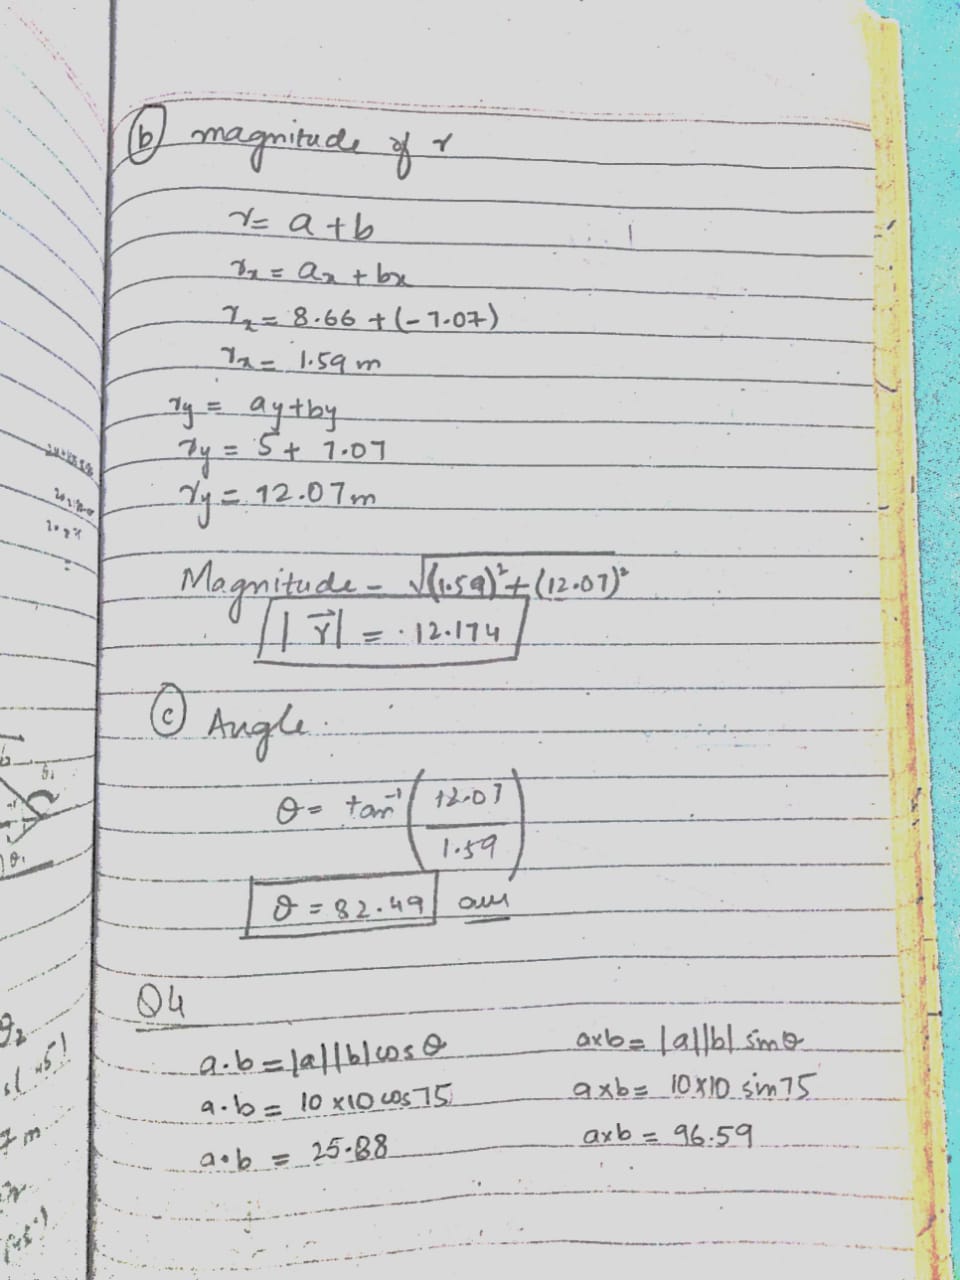 (b) magnitude of r
r = a + b
rx = ax + bx
rx = 8.66 + (-7.07)
rx = 1.59 m
ry = ay + by
ry = 5 + 7.07
ry = 12.07 m
Magnitude - √(1.59)² + (12.07)²
|r⃗| = 12.174
(c) Angle
θ = tan⁻¹ (12.07 / 1.59)
θ = 82.49 ans
Q4
a.b = |a||b| cos θ
a.b = 10 x10 cos 75
a.b = 25.88
axb = |a||b| sin θ
axb = 10x10 sin 75
axb = 96.59